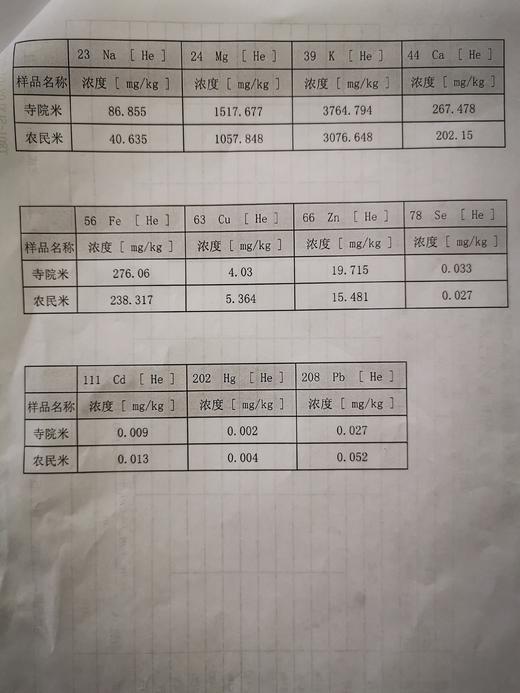 23 Na [ He ] 24 Mg [ He ] 39 K [ He ] 44 Ca [ He ]
样品名称 浓度 [ mg/kg ] 浓度 [ mg/kg ] 浓度 [ mg/kg ] 浓度 [ mg/kg ]
寺院米 86.855 1517.677 3764.794 267.478
农民米 40.635 1057.848 3076.648 202.15
56 Fe [ He ] 63 Cu [ He ] 66 Zn [ He ] 78 Se [ He ]
样品名称 浓度 [ mg/kg ] 浓度 [ mg/kg ] 浓度 [ mg/kg ] 浓度 [ mg/kg ]
寺院米 276.06 4.03 19.715 0.033
农民米 238.317 5.364 15.481 0.027
111 Cd [ He ] 202 Hg [ He ] 208 Pb [ He ]
样品名称 浓度 [ mg/kg ] 浓度 [ mg/kg ] 浓度 [ mg/kg ]
寺院米 0.009 0.002 0.027
农民米 0.013 0.004 0.052